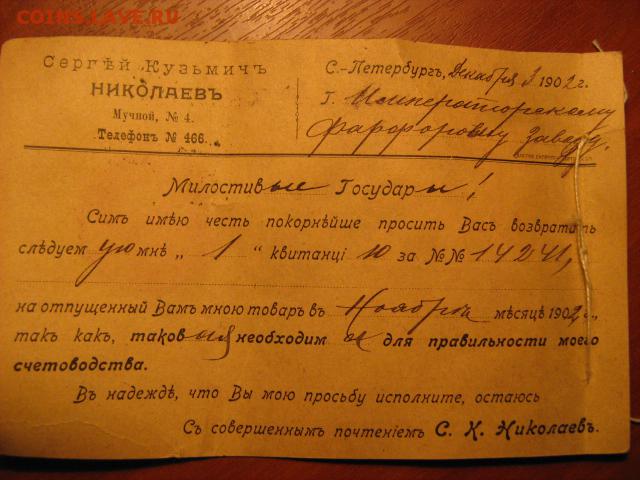 COINS.LAVE.RU
Сергѣй Кузьмичъ
НИКОЛАЕВЪ
Мучной, № 4.
Телефонъ № 466.
С.-Петербургъ, Декабря 3 1902 г.
Г. Императорскому
Фарфоровому Заводу.
Милостивые Государы!
Симъ имѣю честь покорнѣйше просить Васъ возвратить
слѣдуемую мнѣ „ 1 “ квитанцію за №№ 14241,
на отпущенный Вамъ мною товаръ въ Ноябрѣ мѣсяцѣ 1902 г.,
такъ какъ, таковыя необходимы для правильности моего
счетоводства.
Въ надеждѣ, что Вы мою просьбу исполните, остаюсь
Съ совершеннымъ почтеніемъ С. К. Николаевъ.